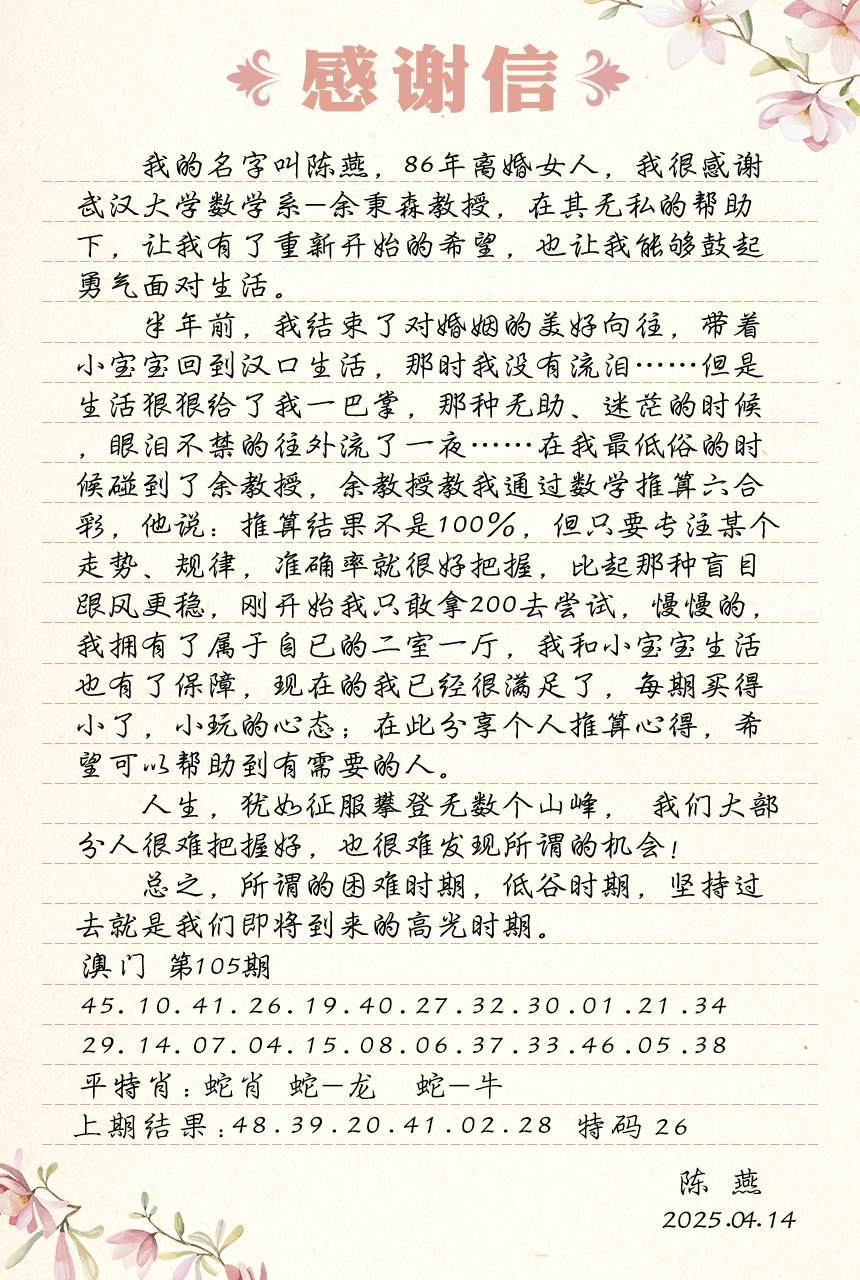 感谢信
我的名字叫陈燕，86年离婚女人，我很感谢
武汉大学数学系—余秉森教授，在其无私的帮助
下，让我有了重新开始的希望，也让我能够鼓起
勇气面对生活。
半年前，我结束了对婚姻的美好向往，带着
小宝宝回到汉口生活，那时我没有流泪……但是
生活狠狠给了我一巴掌，那种无助、迷茫的时候
，眼泪不禁的往外流了一夜……在我最低俗的时
候碰到了余教授，余教授教我通过数学推算六合
彩，他说：推算结果不是100%，但只要专注某个
走势、规律，准确率就很好把握，比起那种盲目
跟风更稳，刚开始我只敢拿200去尝试，慢慢的，
我拥有了属于自己的二室一厅，我和小宝宝生活
也有了保障，现在的我已经很满足了，每期买得
小了，小玩的心态；在此分享个人推算心得，希
望可以帮助到有需要的人。
人生，犹如征服攀登无数个山峰， 我们大部
分人很难把握好，也很难发现所谓的机会！
总之，所谓的困难时期，低谷时期，坚持过
去就是我们即将到来的高光时期。
澳门 第105期
45.10.41.26.19.40.27.32.30.01.21.34
29.14.07.04.15.08.06.37.33.46.05.38
平特肖：蛇肖 蛇—龙 蛇—牛
上期结果：48.39.20.41.02.28 特码 26
陈 燕
2025.04.14